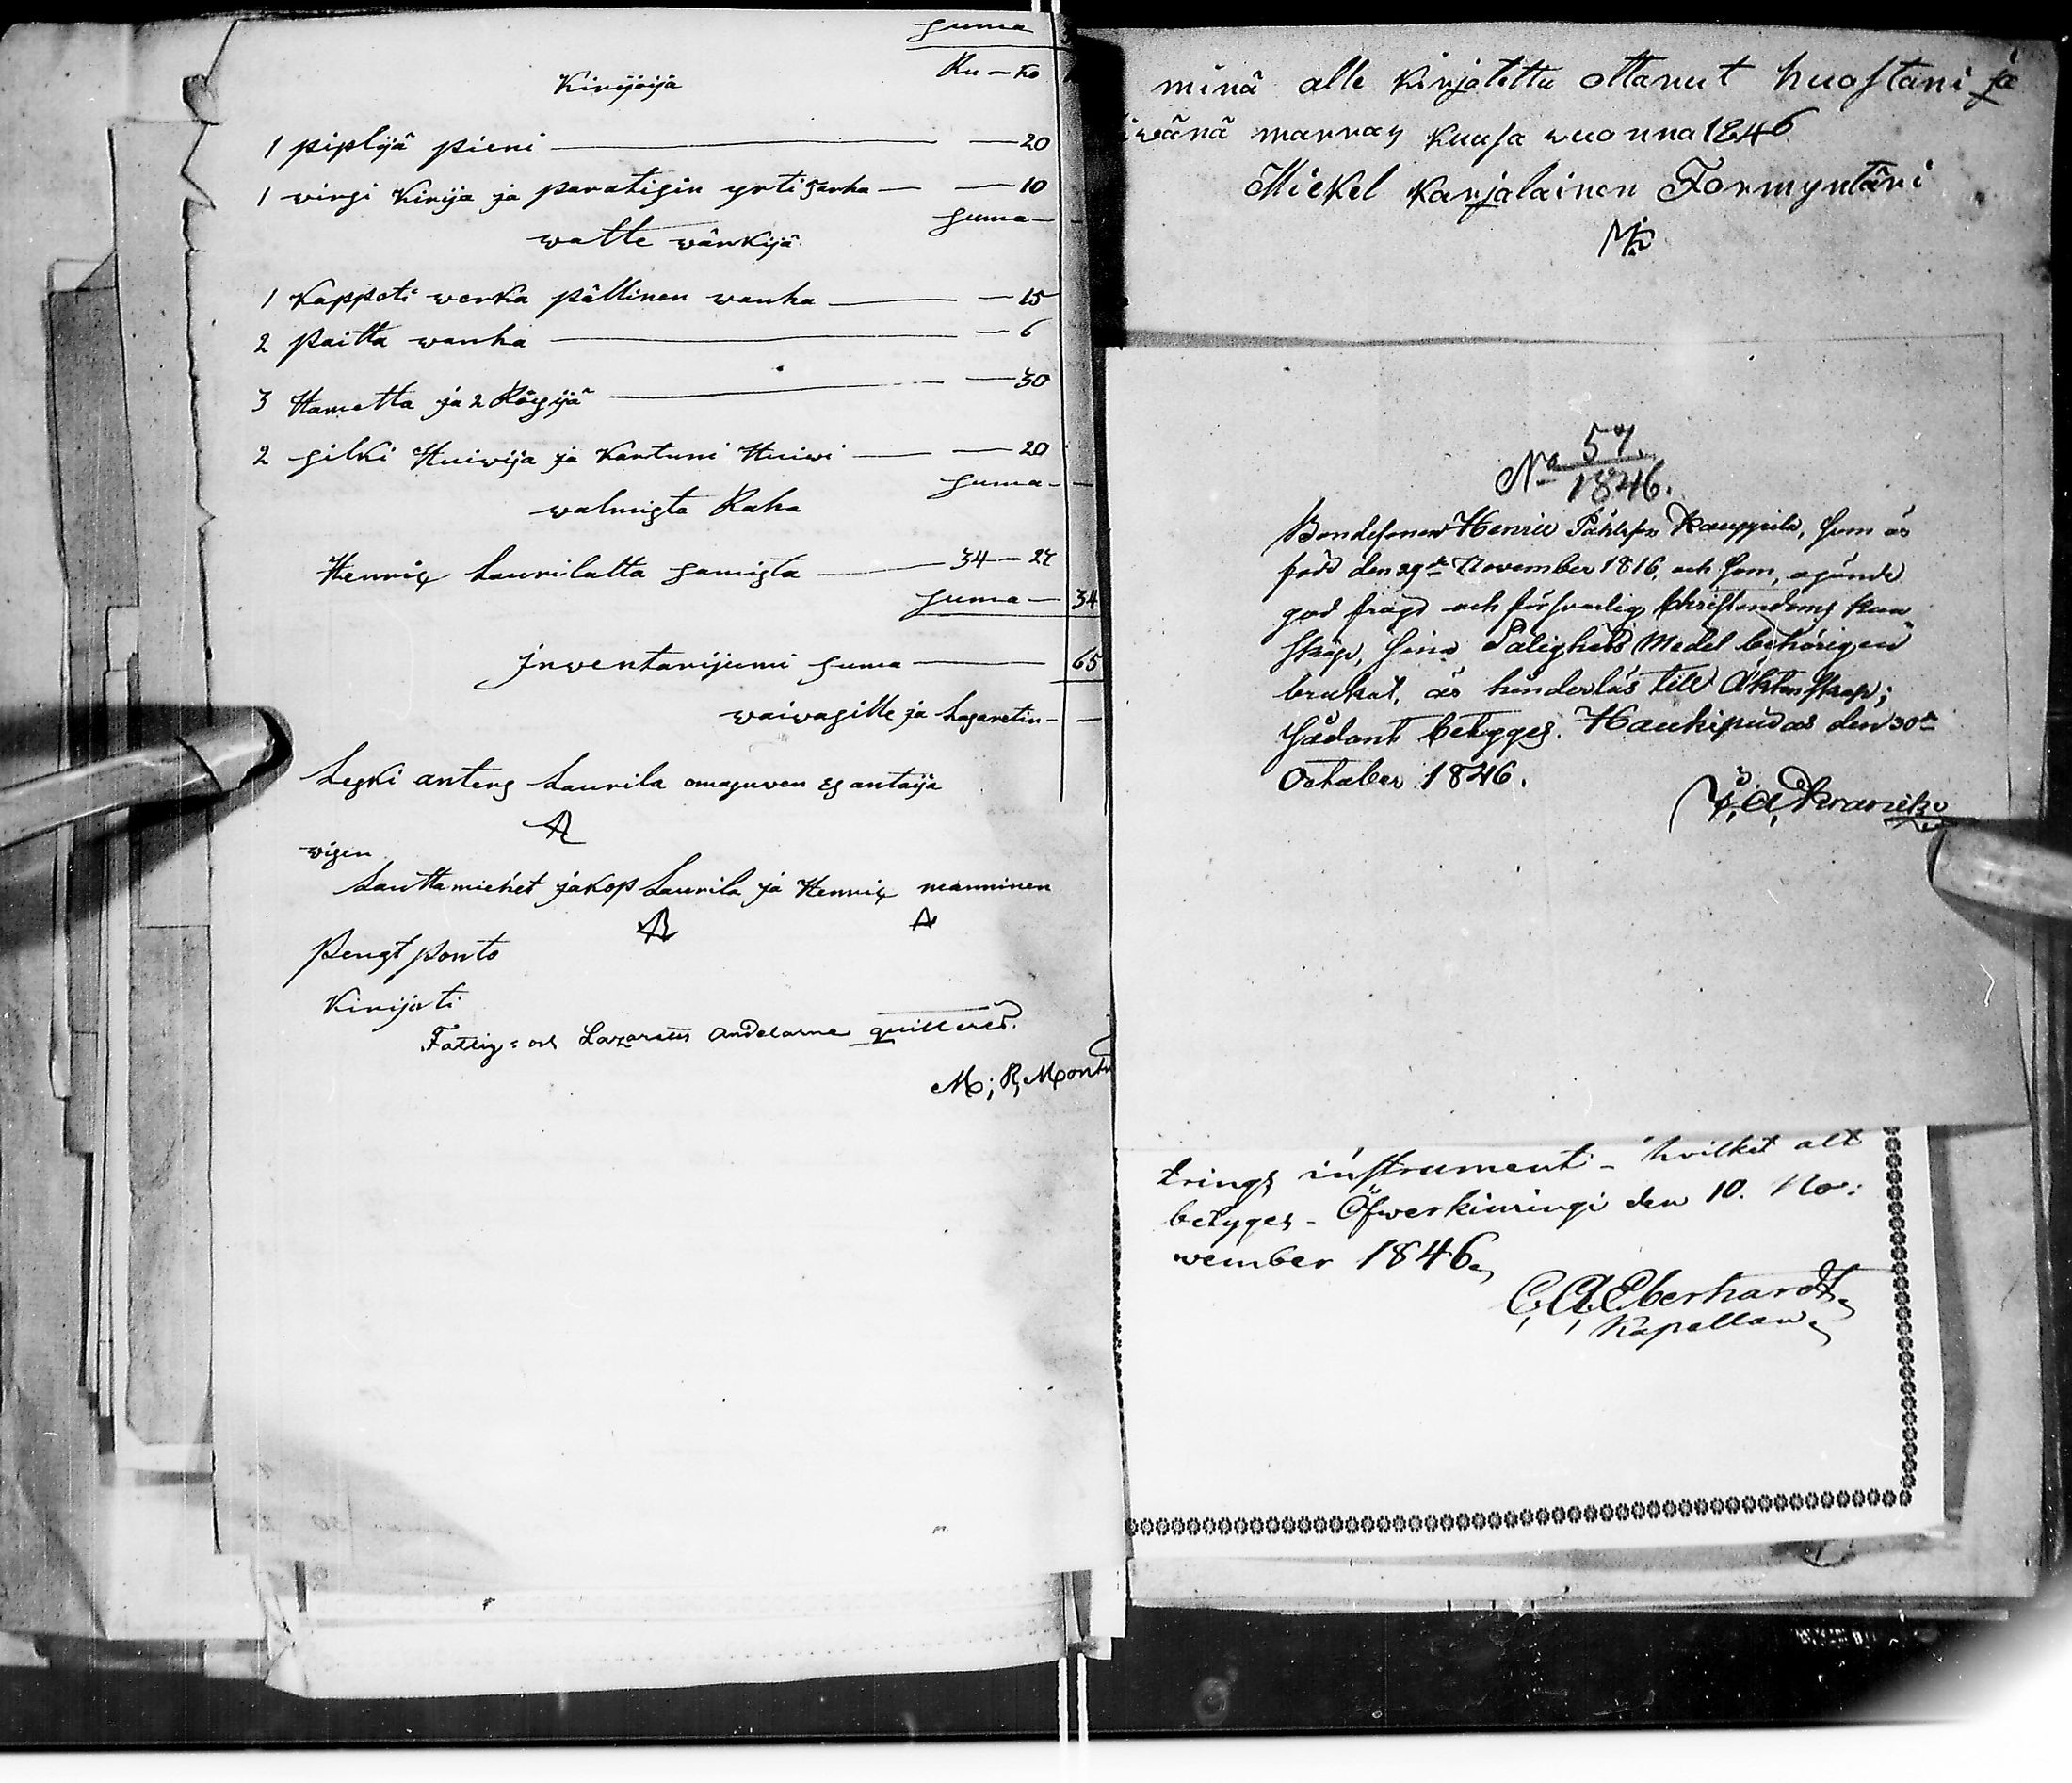 suma
Ru — Ko
Kirijöijä
1 piplijä pieni — — 20
1 virsi Kirija ja paratisin yrtitarha — — 10
suma —
watte wärkijä
1 Kappoti werka pällinen wanha — — 15
2 paitta wanha — — 6
3 Hametta ja 2 Röyijä — — 30
2 silki Huiwija ja Kartuni Huiwi — — 20
suma — —
walmista Raha
Henrix Laurilalta samista — 34 — 27
suma — 34
jnventarijumi suma — 65
waiwasille ja Lasaretin — —
Leski anters Laurila omasuven es antaija
visen
Lauttamiehet jakop Laurila ja Henrix manninen
Pengt ponto
Kirijoti
Fattig= och Lazaretts andelarne quitteras.
M; R, Montin
minä alle Kirjotettu ottanut huostani ja
iwänä marras Kuusa wuonna 1846
Mickel Karjalainen Formyntäri
MK
No 57/1846.
Bondesonen Henric Påhlsson Kauppila, som är
född den 29de November 1816, och som, ägande
god frägd och försvarlig Christendoms kun
skap, sina Salighets Medel behörigen
brukat, är hinderlös till Äktenskap;
sådant betygges. Haukipudas den 30de
October 1846.
trings instrument - hvilket alt
betyges - Öfwerkiimingi den 10. No:
vember 1846,
C, A, Eberhardt,
Kapellan,